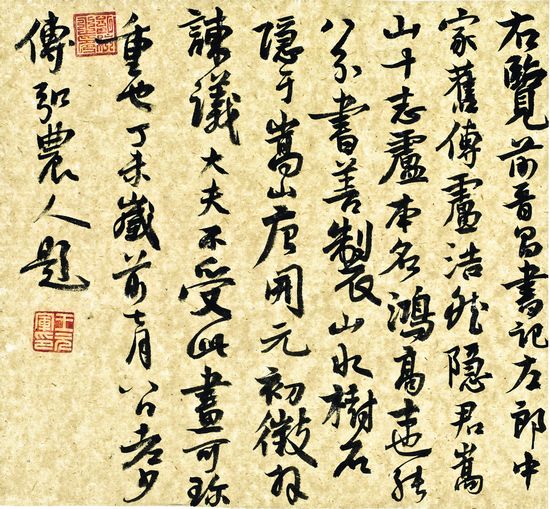 右覽前晉昌書記左郎中
家舊傳盧浩然隱居嵩
山十志盧本名鴻高士也能
八分書善製山水樹石
隱于嵩山唐開元初徵拜
諫議大夫不受此畫可珍
重也丁未歲前七月八日老少
傅弘農人題
王元軍印